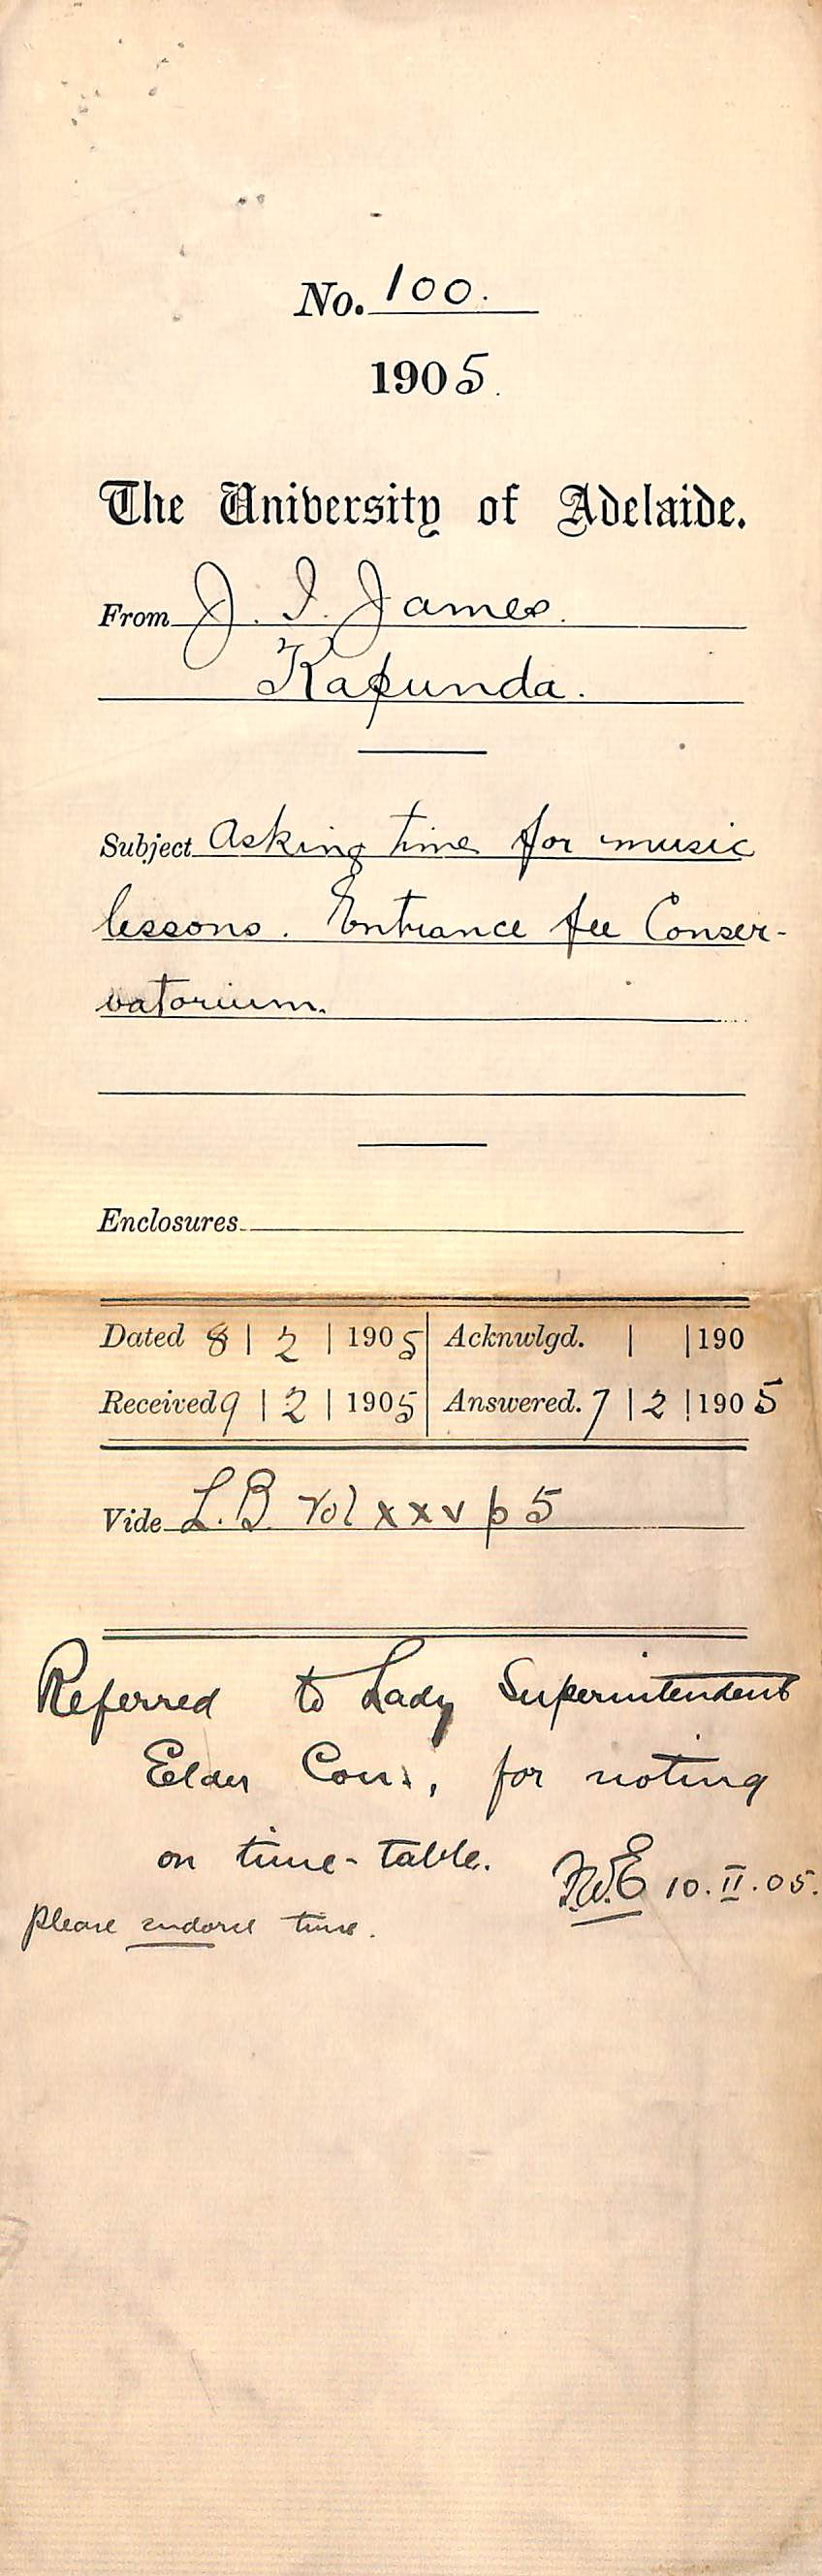 No. 100.
1905.
The University of Adelaide.
From J. I. James.
Kapunda.
Subject Asking time for music
lessons. Entrance fee Conser-
vatorium.
Enclosures
Dated 8 | 2 | 1905 Acknwlgd. | | 190
Received 9 | 2 | 1905 Answered. 7 | 2 | 1905
Vide L.B. Vol xxv p 5
Referred to Lady Superintendent
Elder Cons, for noting
on time-table.
F.W.E 10.II.05.
Please endorse time.